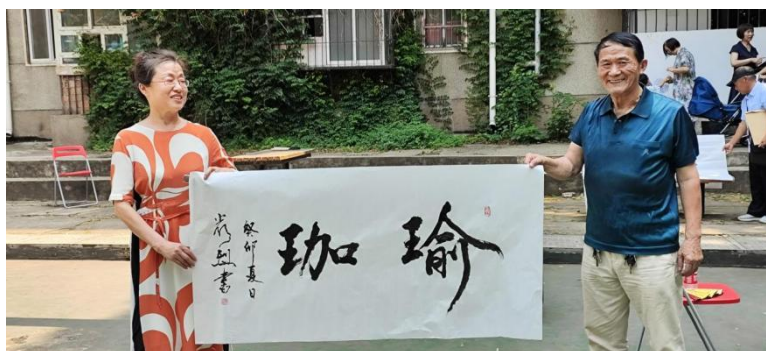 瑜珈
癸卯夏日